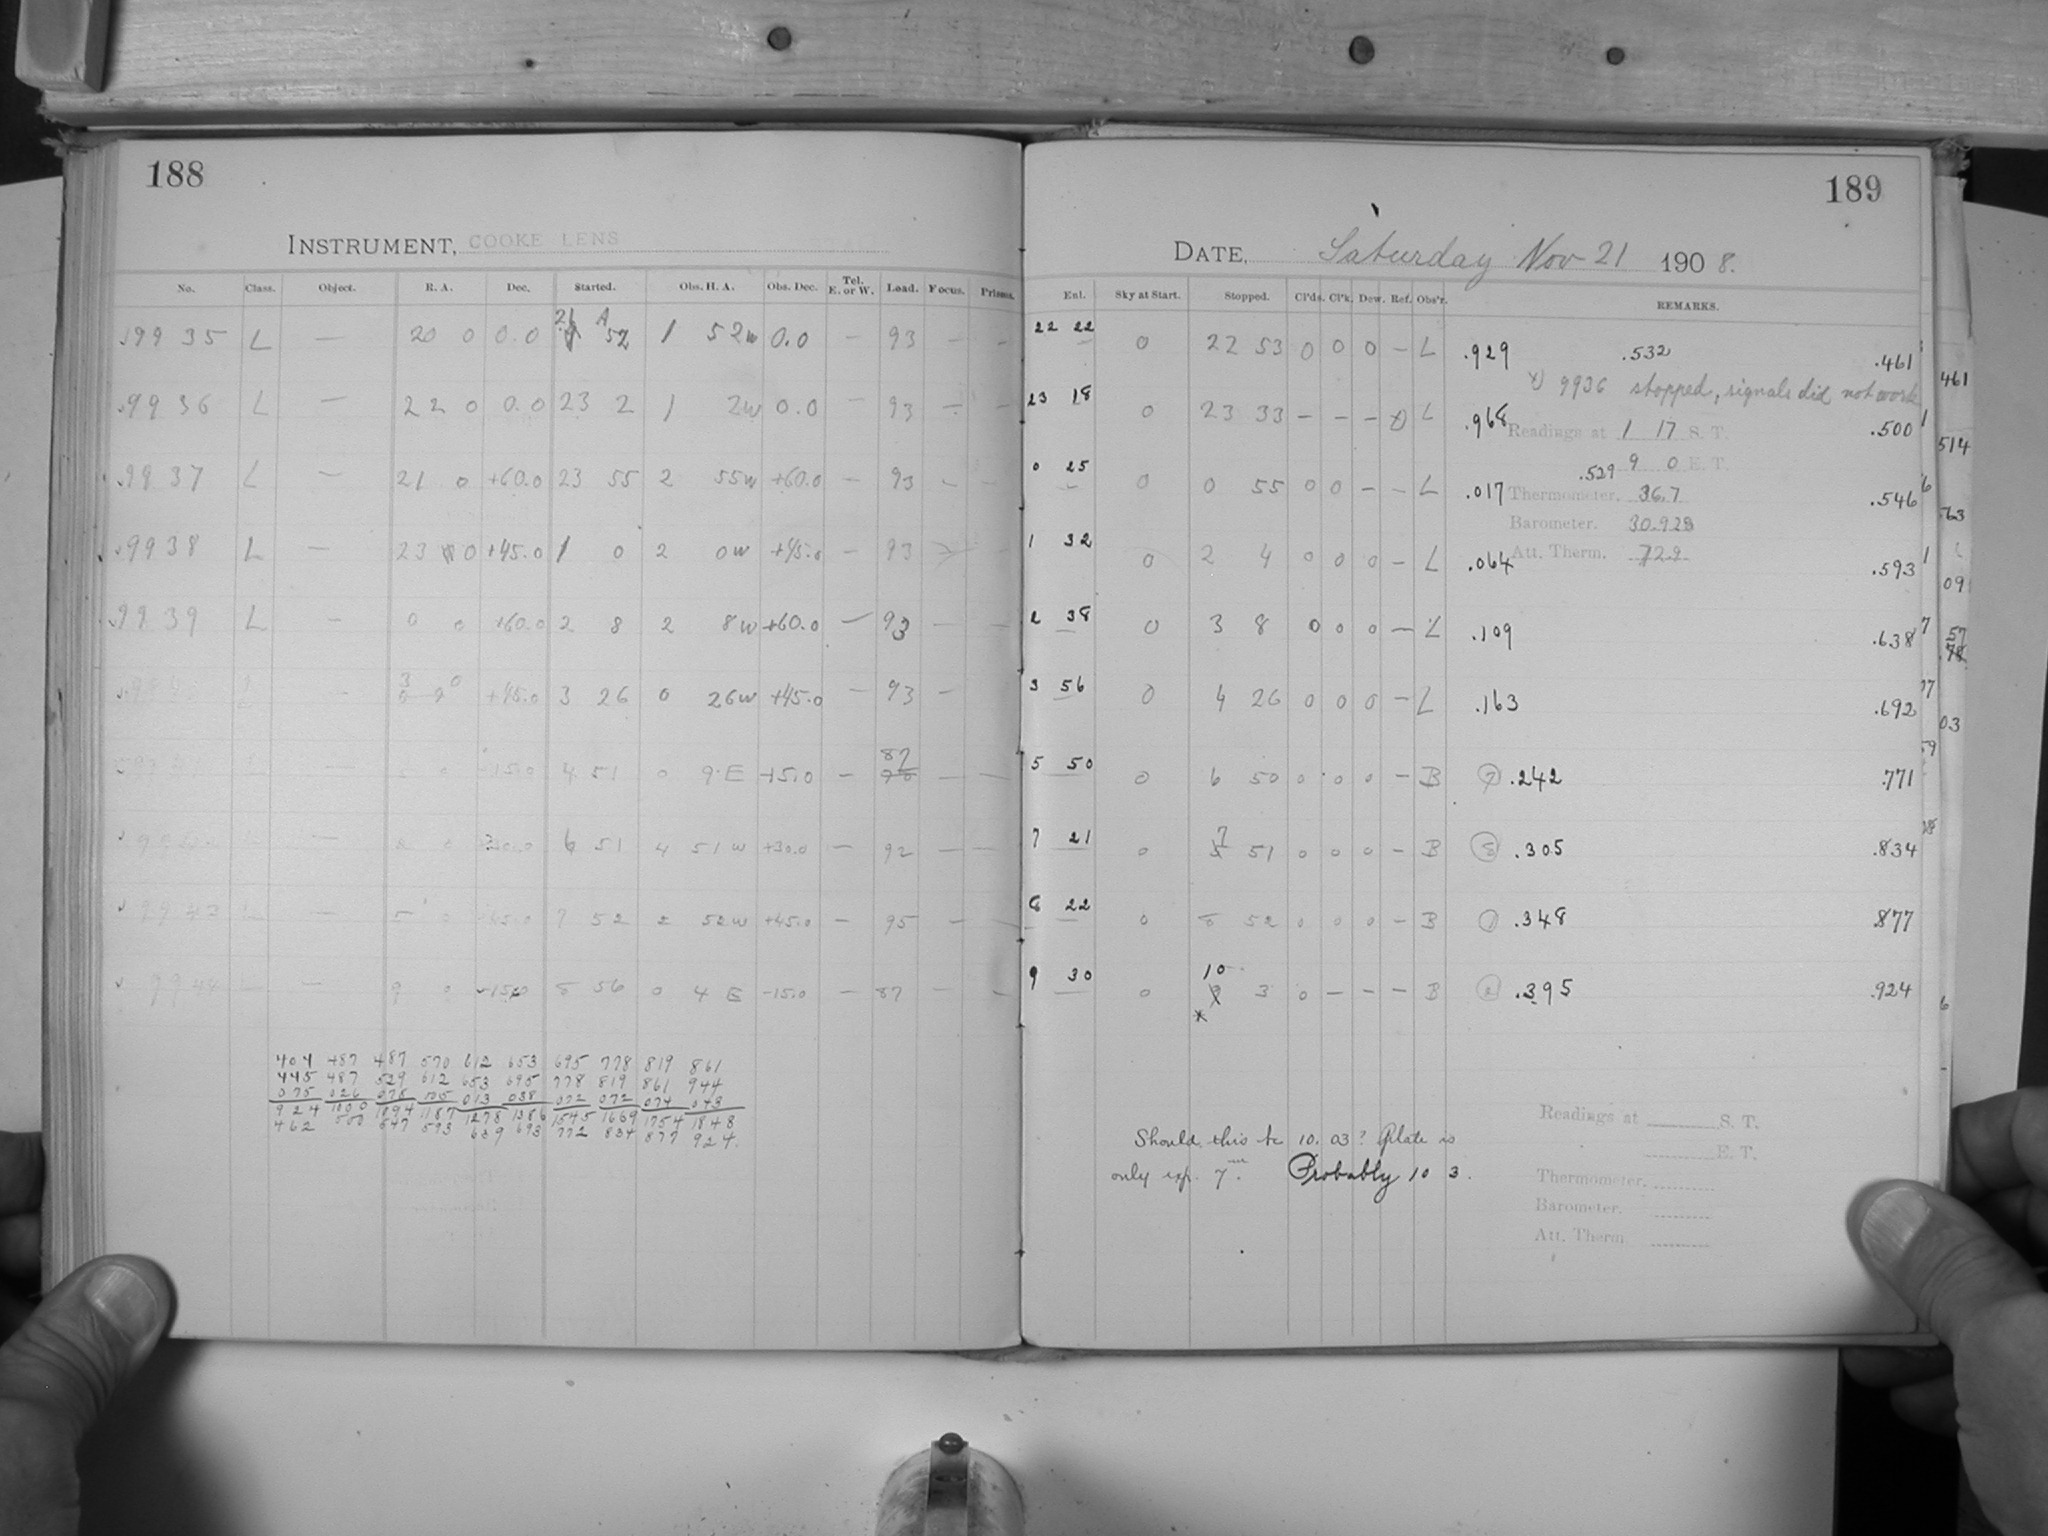 188
INSTRUMENT, COOKE LENS
No. Class. Object. R. A. Dec. Started. Obs. H. A. Obs. Dec. Tel. E. or W. Load. Focus. Prisms.
9935 L — 20 0 0.0 21 52 1 52w 0.0 — 93 — —
9936 L — 22 0 0.0 23 2 1 2w 0.0 — 93 — —
9937 L — 21 0 +60.0 23 55 2 55w +60.0 — 93 — —
9938 L — 23 0 +45.0 1 0 2 0w +45.0 — 93
9939 L — 0 0 +60.0 2 8 2 8w +60.0 — 93 — —
— 3 0 +45.0 3 26 0 26w +45.0 — 93 —
— 4 51 0 9 E — 87 — —
— 6 51 4 51w +30.0 — 92 — —
9943 L — 5 0 +45.0 7 52 2 52w +45.0 — 95 — —
9944 L — 9 0 -15.0 8 56 0 4 E -15.0 — 87 — —
404 487 487 570 612 653 695 778 819 861
445 487 529 612 653 695 778 819 861 944
075 026 078 005 013 038 072 072 074 043
924 1000 1094 1187 1278 1386 1545 1669 1754 1848
462 500 547 593 639 693 772 834 877 924.
189
DATE, Saturday Nov 21 1908.
Enl. Sky at Start. Stopped. Cl'ds. Cl'k. Dew. Ref. Obs'r. REMARKS.
22 22 0 22 53 0 0 0 — L .929 .532 .461
x) 9936 stopped, signals did not work
23 18 0 23 33 — — — x) L .968 .500
Readings at 1 17 S. T.
9 0 E. T.
0 25 0 0 55 0 0 — — L .017 .529 .546
Thermometer. 36.7
Barometer. 30.928
1 32 0 2 4 0 0 0 — L .064 .593
Att. Therm. 72.9
2 38 0 3 8 0 0 0 — L .109 .638
3 56 0 4 26 0 0 0 — L .163 .692
5 50 0 6 50 0 0 0 — B .242 .771
7 21 0 7 51 0 0 0 — B .305 .834
8 22 0 8 52 0 0 0 — B .348 .877
9 30 0 10 3 0 — — — B .395 .924
*
Readings at S. T.
E. T.
Thermometer.
Barometer.
Att. Therm
Should this be 10. 03? Plate is
only exp. 7m. Probably 10 3.
461
514
.63
09
57
03